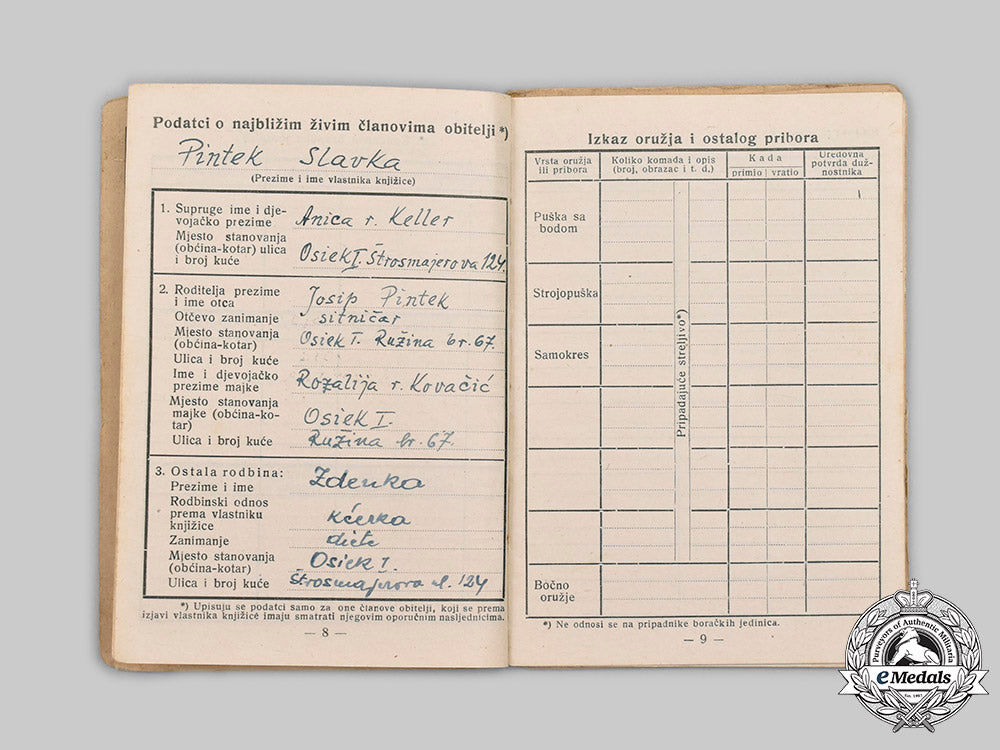 Podatci o najbližim živim članovima obitelji *)
Pintek Slavka
(Prezime i ime vlastnika knjižice)
1. Supruge ime i dje-
vojačko prezime
Anica r. Keller
Mjesto stanovanja
(obćina-kotar) ulica
i broj kuće
Osiek I. Štrosmajerova 124.
2. Roditelja prezime
i ime otca
Josip Pintek
Otčevo zanimanje
sitničar
Mjesto stanovanja
(obćina-kotar)
Osiek I. Ružina br. 67.
Ulica i broj kuće
Ime i djevojačko
prezime majke
Rozalija r. Kovačić
Mjesto stanovanja
majke (obćina-ko-
tar)
Osiek I.
Ulica i broj kuće
Ružina br. 67.
3. Ostala rodbina:
Prezime i ime
Zdenka
Rodbinski odnos
prema vlastniku
knjižice
kćerka
Zanimanje
diete
Mjesto stanovanja
(obćina-kotar)
Osiek I.
Ulica i broj kuće
Štrosmajerova ul. 124
*) Upisuju se podatci samo za one članove obitelji, koji se prema
izjavi vlastnika knjižice imaju smatrati njegovim oporučnim nasljednicima.
— 8 —
Izkaz oružja i ostalog pribora
Vrsta oružja
ili pribora
Koliko komada i opis
(broj, obrazac i t. d.)
Kada
primio
vratio
Uredovna
potvrda duž-
nostnika
Puška sa
bodom
Strojopuška
Samokres
Pripadajuće streljivo*)
Bočno
oružje
*) Ne odnosi se na pripadnike boračkih jedinica.
— 9 —
Purveyors of Authentic Militaria
eMedals